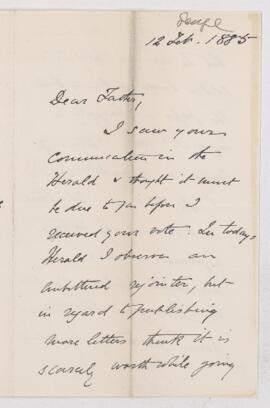 12 Feb. 1885
Dear Father,
I saw your
communication in the
Herald & thought it must
be due to you before I
received your note. In todays
Herald I observe an
embittered rejoinder, but
in regard to publishing
more letters think it is
scarcely worth while going